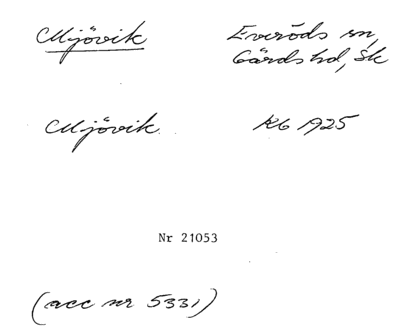 Mjövik Everöds sn,
Gärds hd, Sk
Mjövik Kb 1925
Nr 21053
(acc nr 5331)